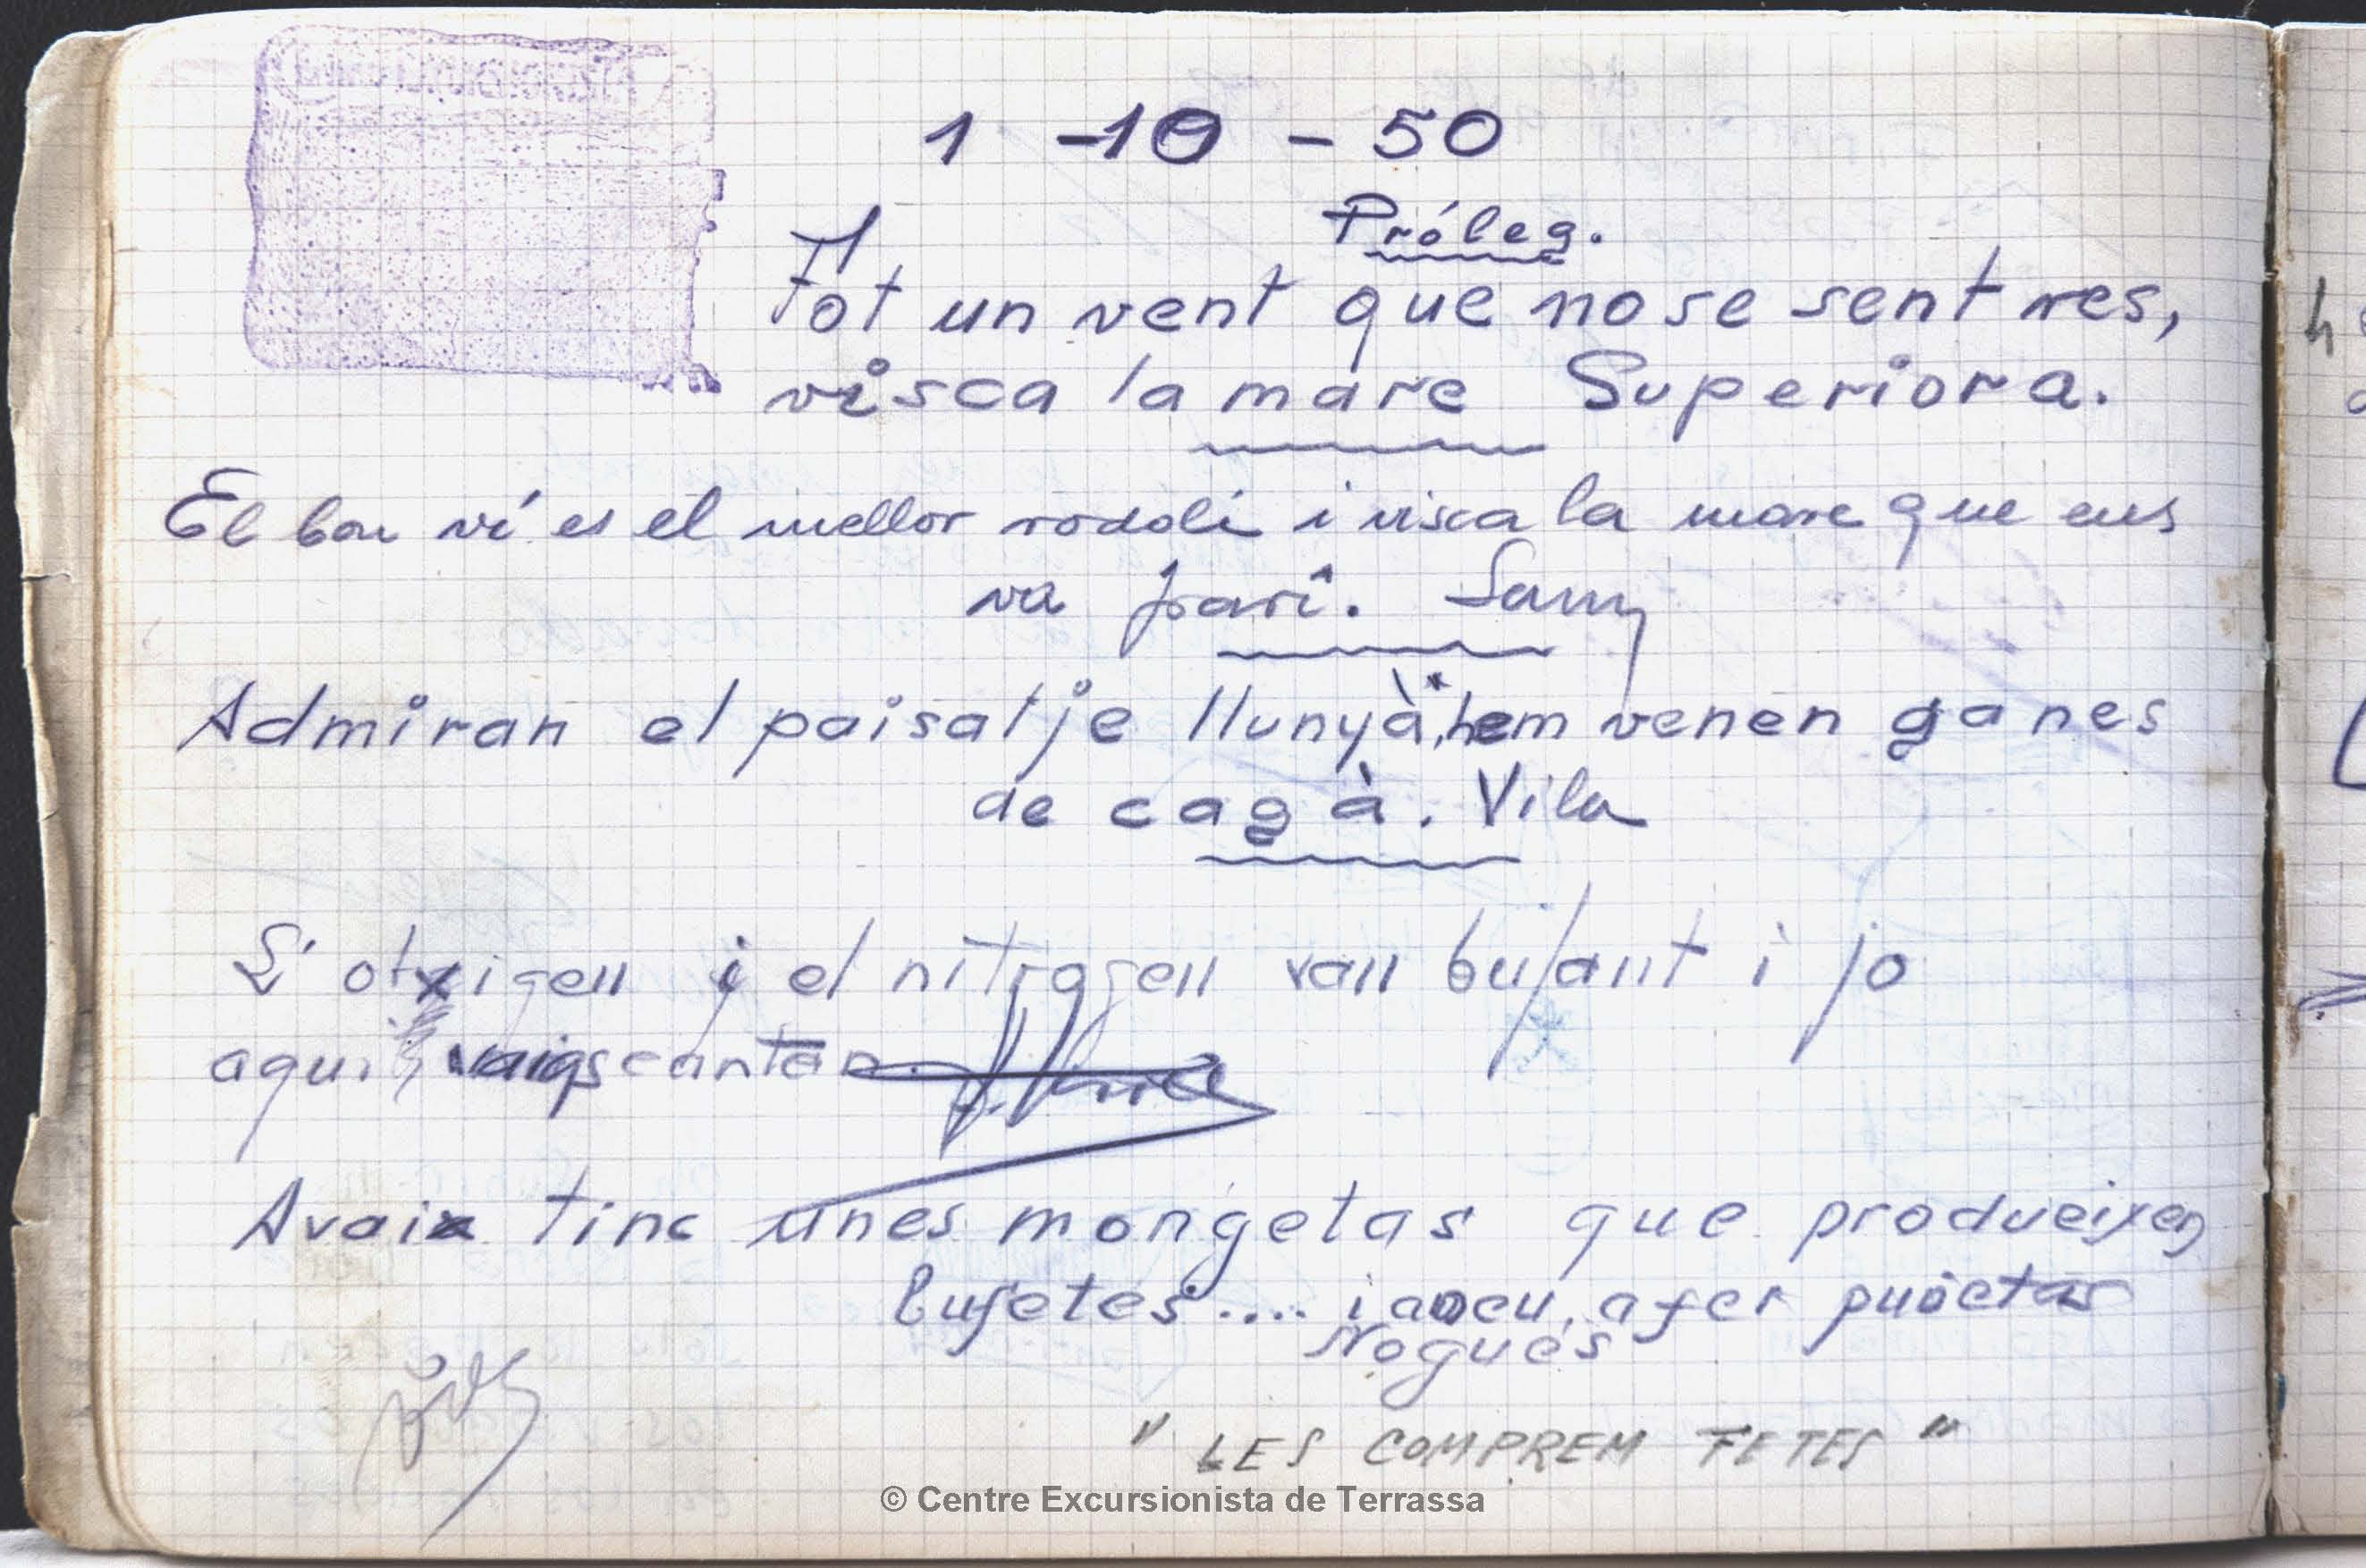 1 - 10 - 50
Próleg.
Fot un vent que no se sent res,
visca la mare Superiora.
El bon ví es el mellor rodolí i visca la mare que ens
va parí. Samy
Admiran el paisatje llunyà, hem venen ganes
de cagà. Vila
L'otxigen i el nitrogen van bufant i jo
aqui vaigs cantan
Avaix tinc unes mongetas que produeixen
bufetes.... i aneu a fer puñetas
Nogués
" LES COMPREM FETES "
© Centre Excursionista de Terrassa